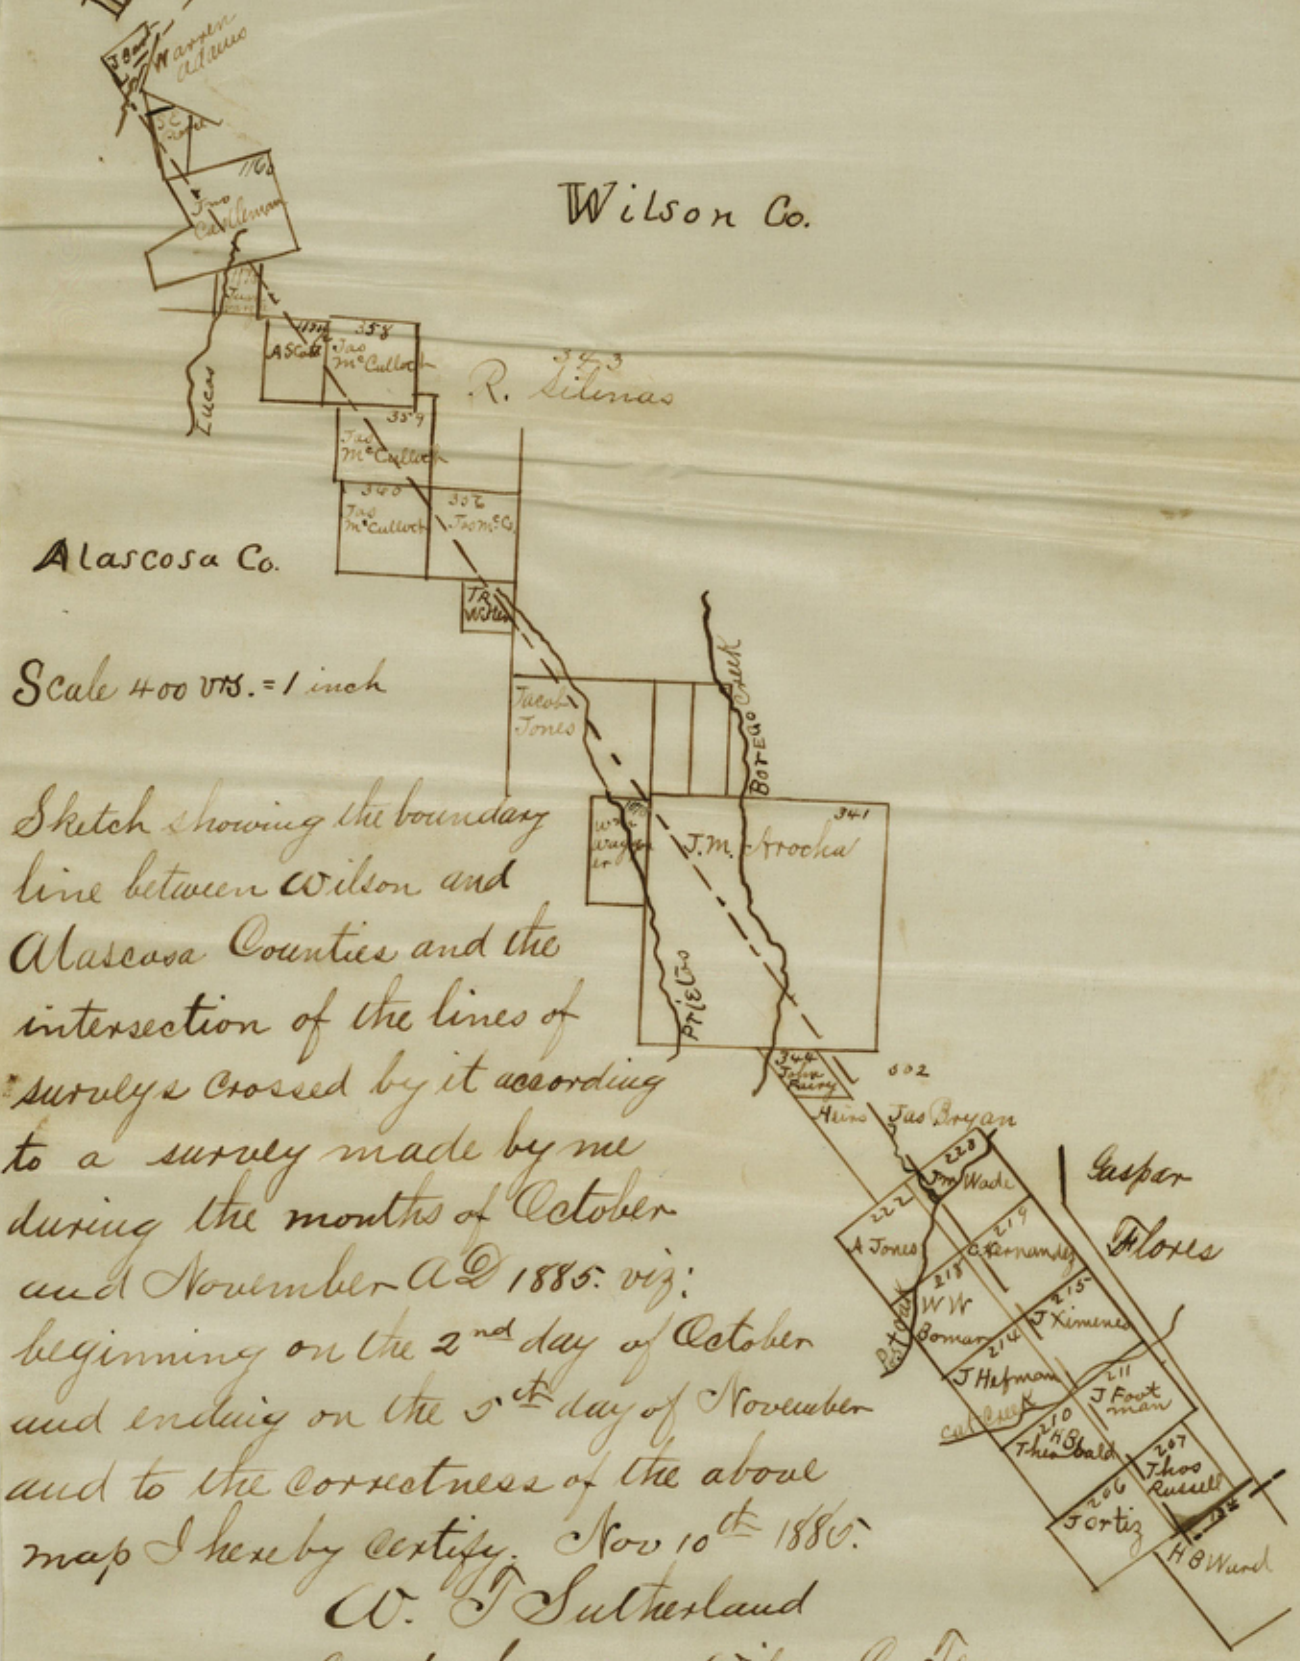 Warren
Adams
1160
Jno
Castleman
Wilson Co.
Lucas
A Scott
358
Jas
McCulloch
343
R. Silinas
359
Jas
McCulloch
360
Jas
McCulloch
Jas Mc.C.
Atascosa Co.
Scale 400 vrs. = 1 inch
Jacob
Jones
Borego Creek
341
J.M. Arocha
Wm
Wagon
er
Prietos
344
John
Rairy
Heirs
Jas Bryan
Gaspar
Flores
223
Jm Wade
222
A Jones
219
C Hernandez
218
W W
Bomar
215
J Ximenes
214
J Hefman
211
J Foot
man
Cat Creek
210
H B
Theobald
207
Thos
Russell
206
J Ortiz
H B Ward
Sketch showing the boundary
line between Wilson and
Atascosa Counties and the
intersection of the lines of
surveys crossed by it according
to a survey made by me
during the months of October
and November AD 1885. viz:
beginning on the 2nd day of October
and ending on the 5th day of November
and to the correctness of the above
map I hereby certify. Nov 10th 1885.
W. T Sutherland